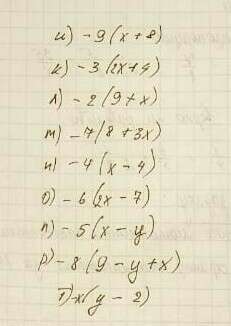 и) -9(x+8)
к) -3(2x+4)
л) -2(9+x)
м) -7(8+3x)
н) -4(x-4)
о) -6(2x-7)
п) -5(x-y)
р) -8(9-y+x)
т) -x(y-2)